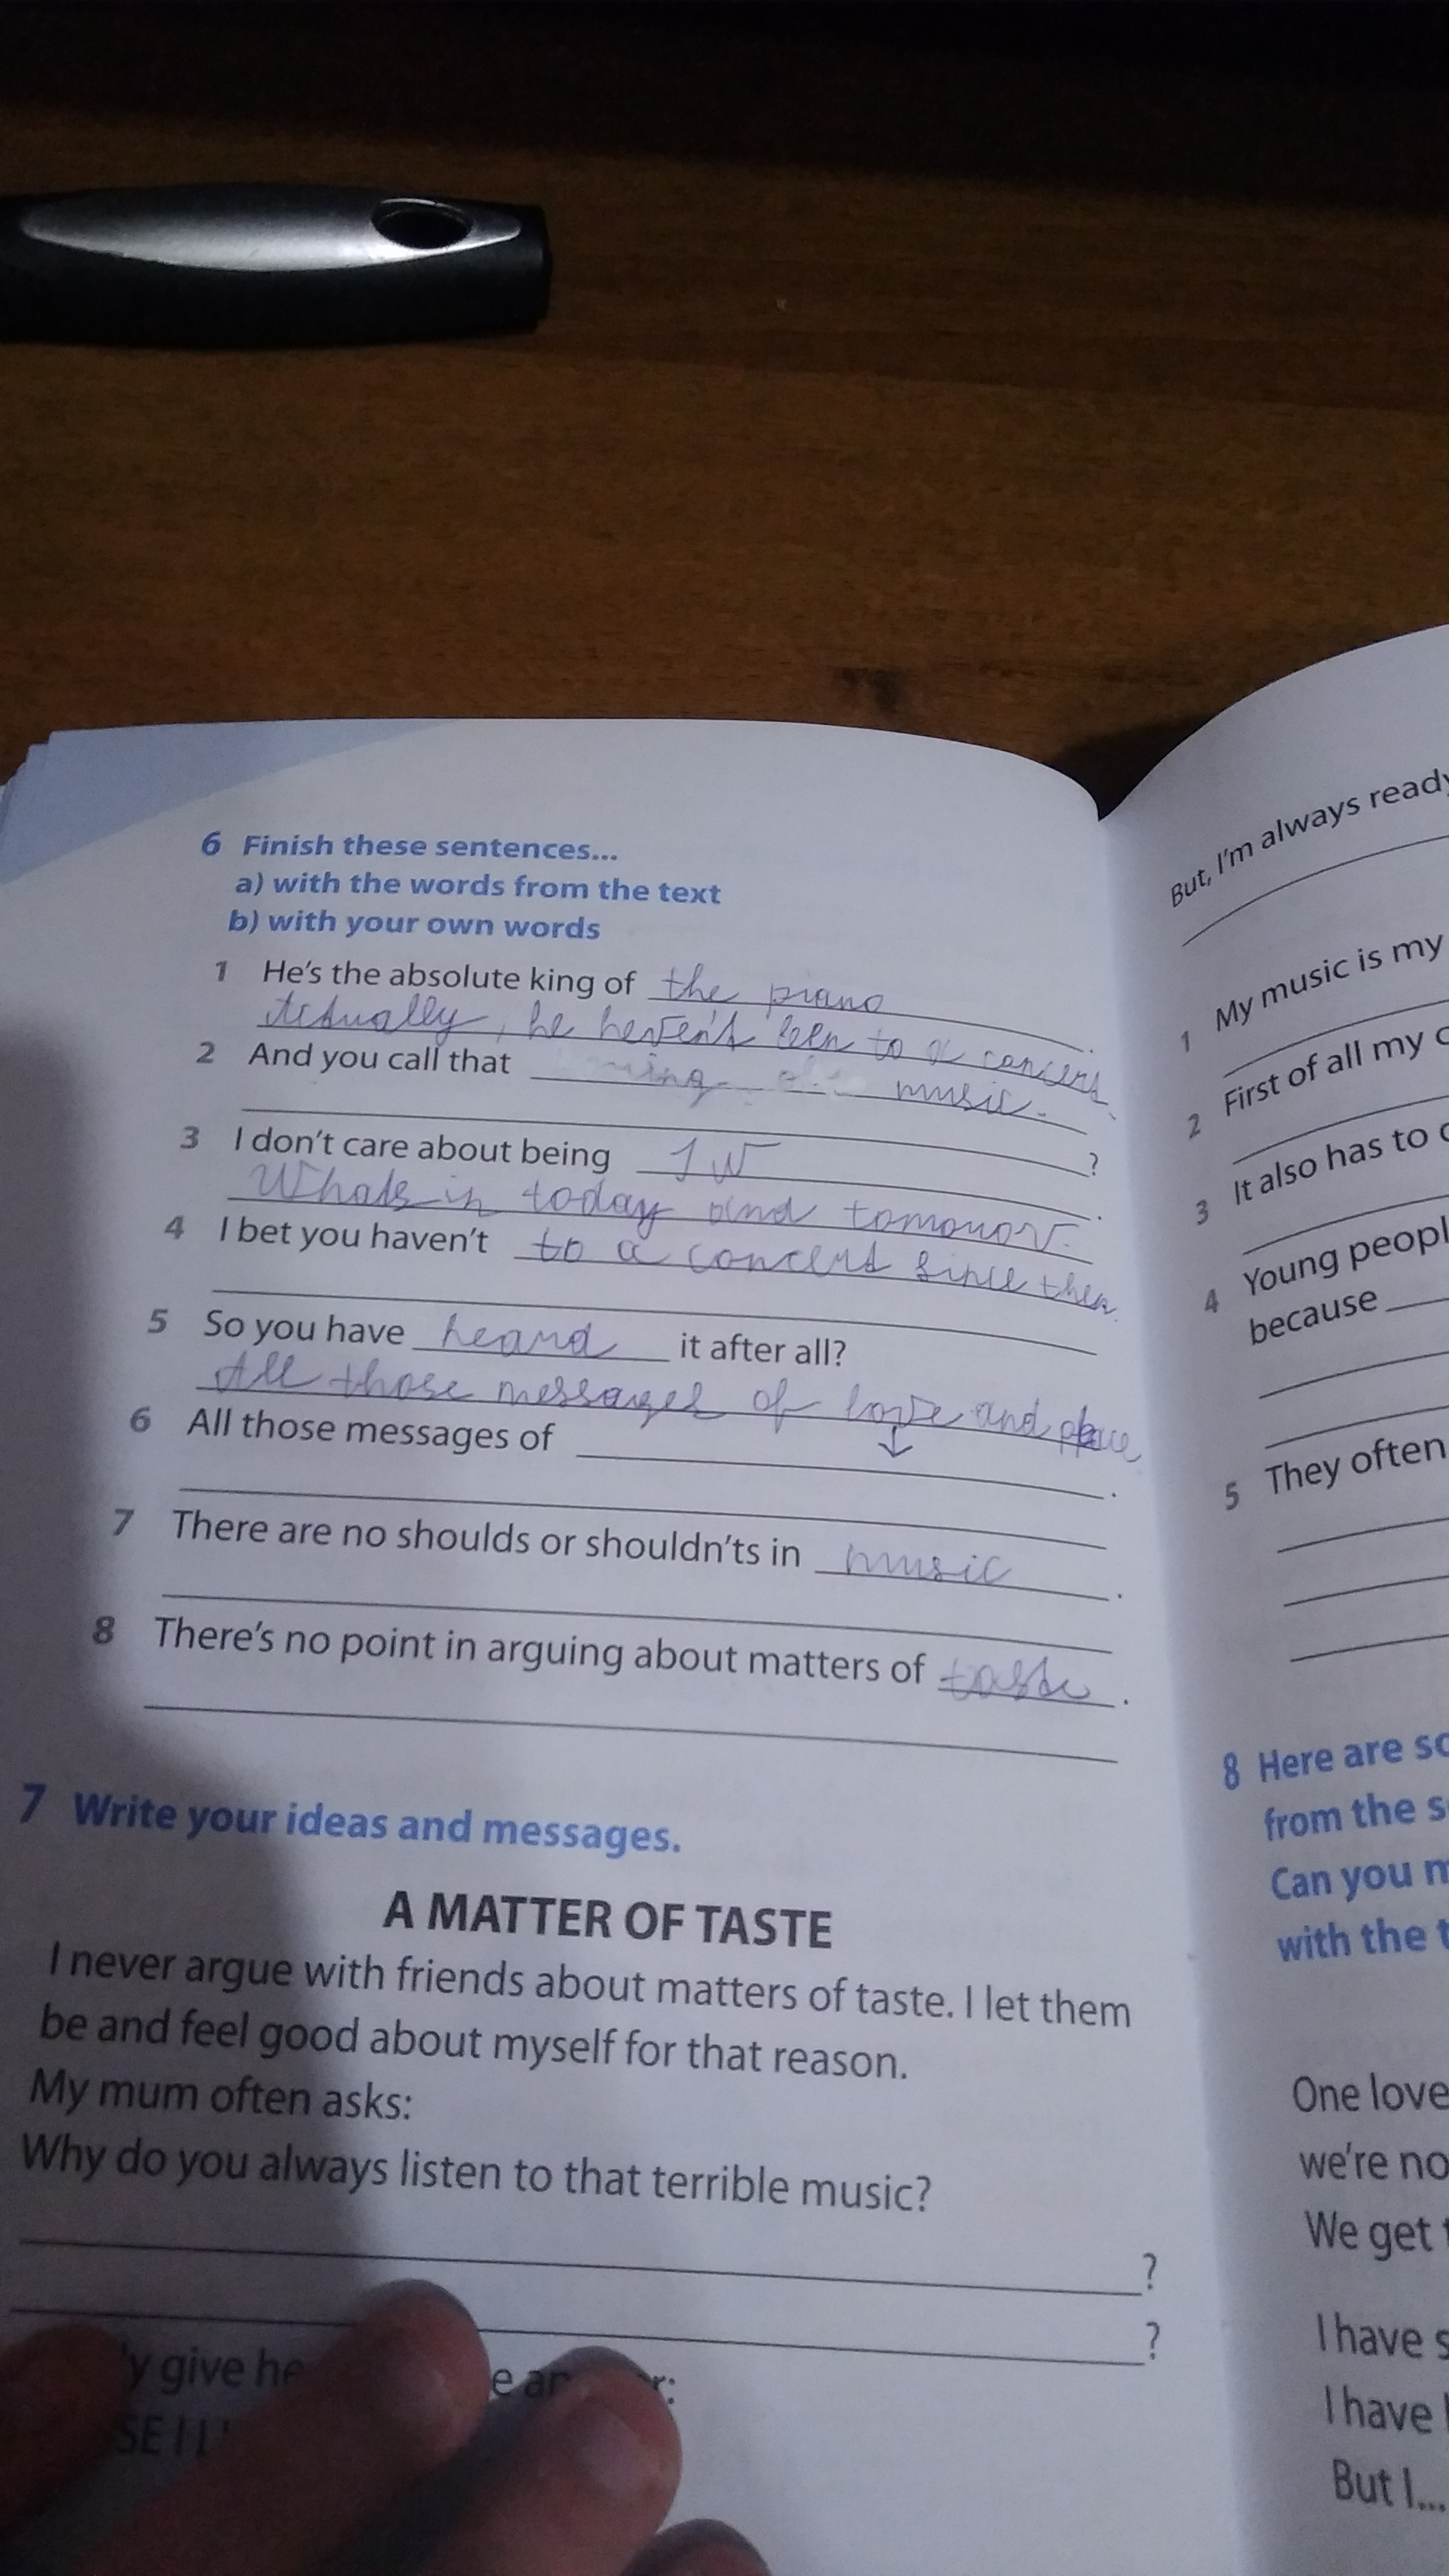 6 Finish these sentences...
a) with the words from the text
b) with your own words
1 He's the absolute king of the piano.
Actually, he heven't been to a concert.
2 And you call that music.
?
3 I don't care about being IN.
Whats in today and tomorrov.
4 I bet you haven't to a concert since then.
5 So you have heard it after all?
All those messages of love and peace
6 All those messages of ↓.
7 There are no shoulds or shouldn'ts in music.
8 There's no point in arguing about matters of taste.
7 Write your ideas and messages.
A MATTER OF TASTE
I never argue with friends about matters of taste. I let them
be and feel good about myself for that reason.
My mum often asks:
Why do you always listen to that terrible music?
?
?
give
But, I'm always ready
1 My music is my
2 First of all my
3 It also has to
4 Young peopl
because
5 They often
8 Here are so
from the s
Can you m
with the t
One love
we're no
We get
I have s
I have
But I...